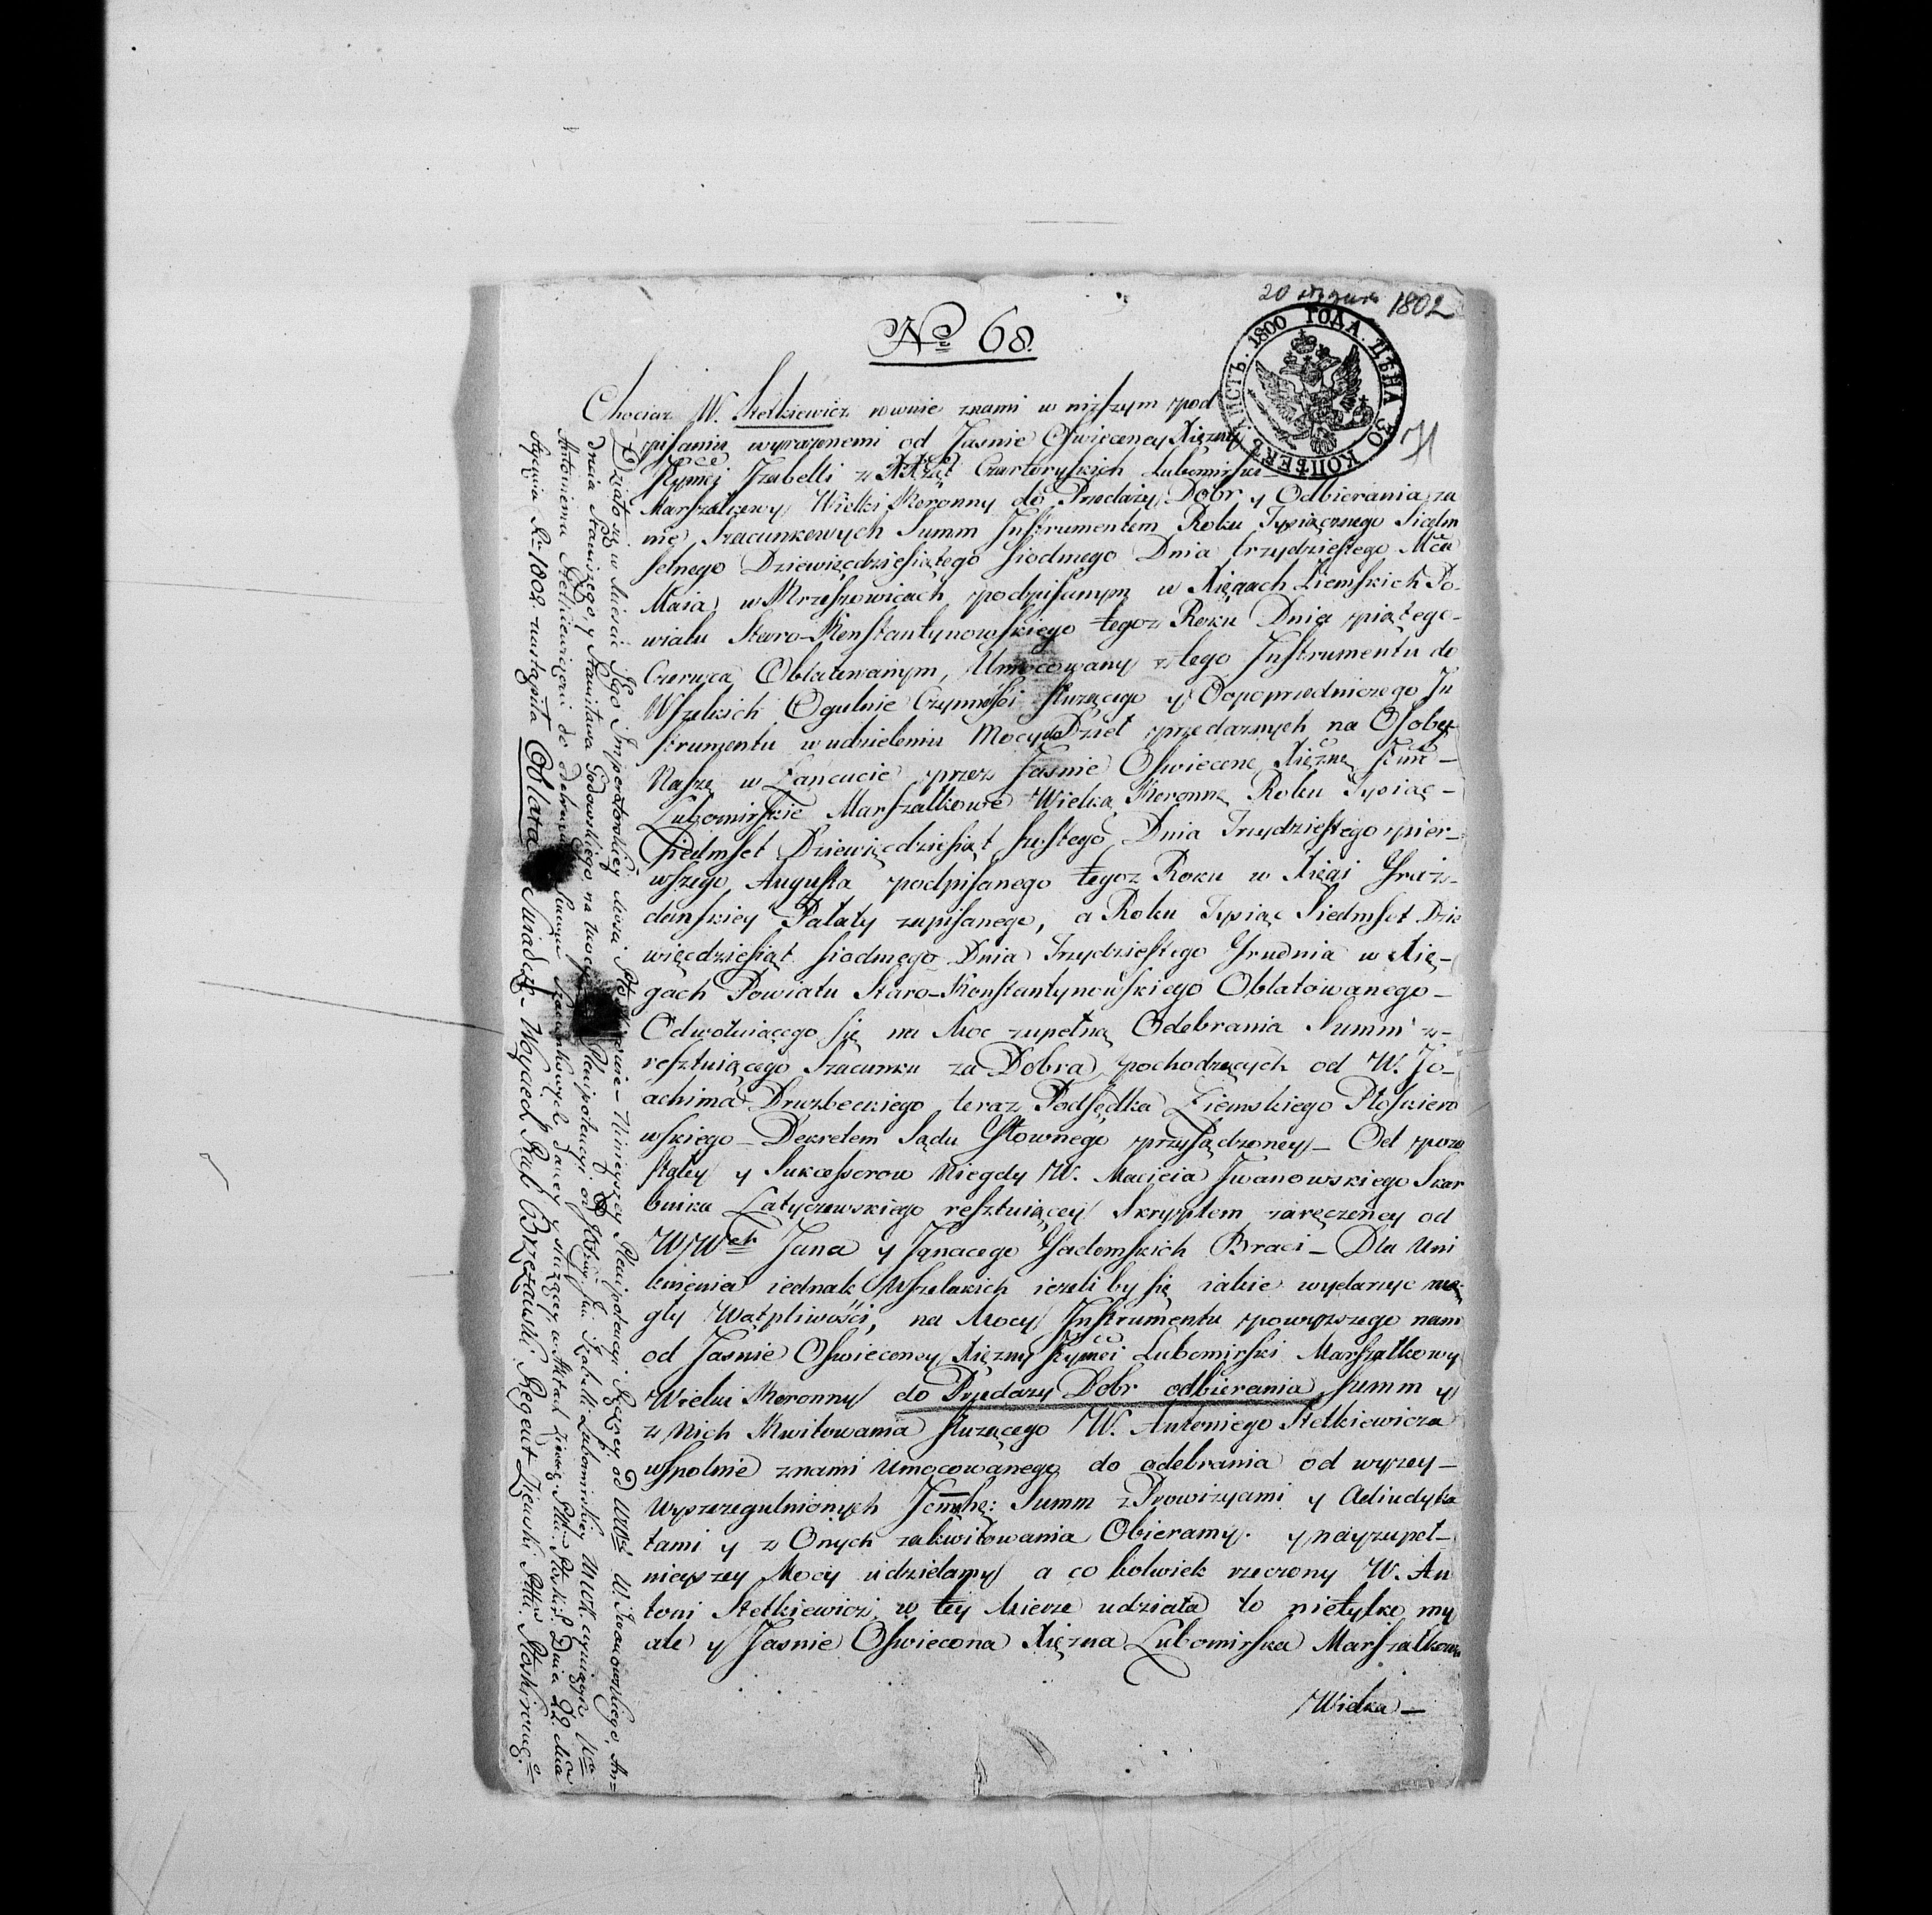 20 stycznia 1802
№ 68.
ЛИСТЪ. 1800 ГОДА. ЦѢНА 30 КОПѢЕКЪ
Chociaz W. Stetkiewicz rownie znami w nizszym pod
pisaniu wyrazonemi od Jasnie Oswieconey Xięzny
Jzabelli z XXżąt Czartoryskich Lubomirski
Marszałkowy Wielki Koronny do Przedaży Dobr y Odbierania za
nię Szacunkowych Summ Instrumentem Roku Tysiącznego Siedm
setnego Dziewięcdziesiątego Siodmego Dnia trzydziestego Mca
Maia w Krzeszowicach podpisanym w Xięgach Ziemskich Po-
wiatu Staro-Konstantynowskiego tegoz Roku Dnia piątego
Czerwca Oblatowanym, Umocowany z tego Instrumentu do
Wszelkich Ogulnie Czynności służącego y Dopoprzedniczego In
strumentu w udzieleniu Mocy Dzieł przedaznych na Osoby
Nasze w Łancucie przez Jasnie Oswieconę Xięznę
Lubomirskie Marszałkowe Wielką Koronnę Roku Tysiąc-
Siedmset Dziewięcdziesiąt Szostego Dnia Trzydziestego pier-
wszego Augusta podpisanego tegoz Roku w Xięgi Graz-
danskiey Pałaty zapisanego, a Roku Tysiąc Siedmset Dzie
więcdziesiąt siodmego Dnia Trzydziestego Grudnia w Xię-
gach Powiatu Staro-Konstantynowskiego Oblatowanego-
Odwołuiącego się na Moc zupełną Odebrania Summ z-
resztuiącego Szacunku za Dobra pochodzących od W. Jo-
achima Druzbeckiego teraz Podsędka Ziemskiego Płoskiero
wskiego - Dekretem Sądu Głownego przysądzoney - Od pozo
stałey y Sukcessorow Niegdy W. Macieia Jwanowskiego Skar
bnika Latyczewskiego resztuiącey Skryptem zaręczoney od
WW Jana y Jgnacego Gadomskich Braci - Dla Uni
knienia iednak Wszelakich iezeli by się iakie wydarzyc mo
gły Wątpliwości, na Mocy Instrumentu powyzszego nam
od Jasnie Oswieconey Xięzny Lubomirski Marszałkowy
Wielki Koronny do Przedazy Dobr odbierania Summ y
z Nich Kwitowania służącego W. Antoniego Stetkiewicza
wspolnie znami Umocowanego do odebrania od wyzey-
wyszczegulnionych Summ z Prowizyami y Adiudyka
tami y z Onych zakwitowania Obieramy. y nayzupeł-
nieyszey Mocy udzielamy a co kolwiek rzeczony W. An
toni Stetkiewicz w tey Mierze udziała to nietylko my
ale y Jasnie Oswiecona Xięzna Lubomirska Marszałkowa
Wielka -
Działo się w Miescie Jego Imperatorskiey Mosci Ninieyszey Plenipotencyi od W. Jwanowskiego, An=
drzeia Staniszego, y Stanisława Godowskiego na Mocy Plenipotencyi od Izabelli Lubomirskiey
Antoniemu Stetkiewiczowi do odebrania Summ Szacunkowych daney y służącey Dnia 22 Mca
Stycznia Rku 1802. nastąpiła Oblata Swiadczę - Woyciech Brzezawski Regent Ziemski Pttu Płoskirowgo.